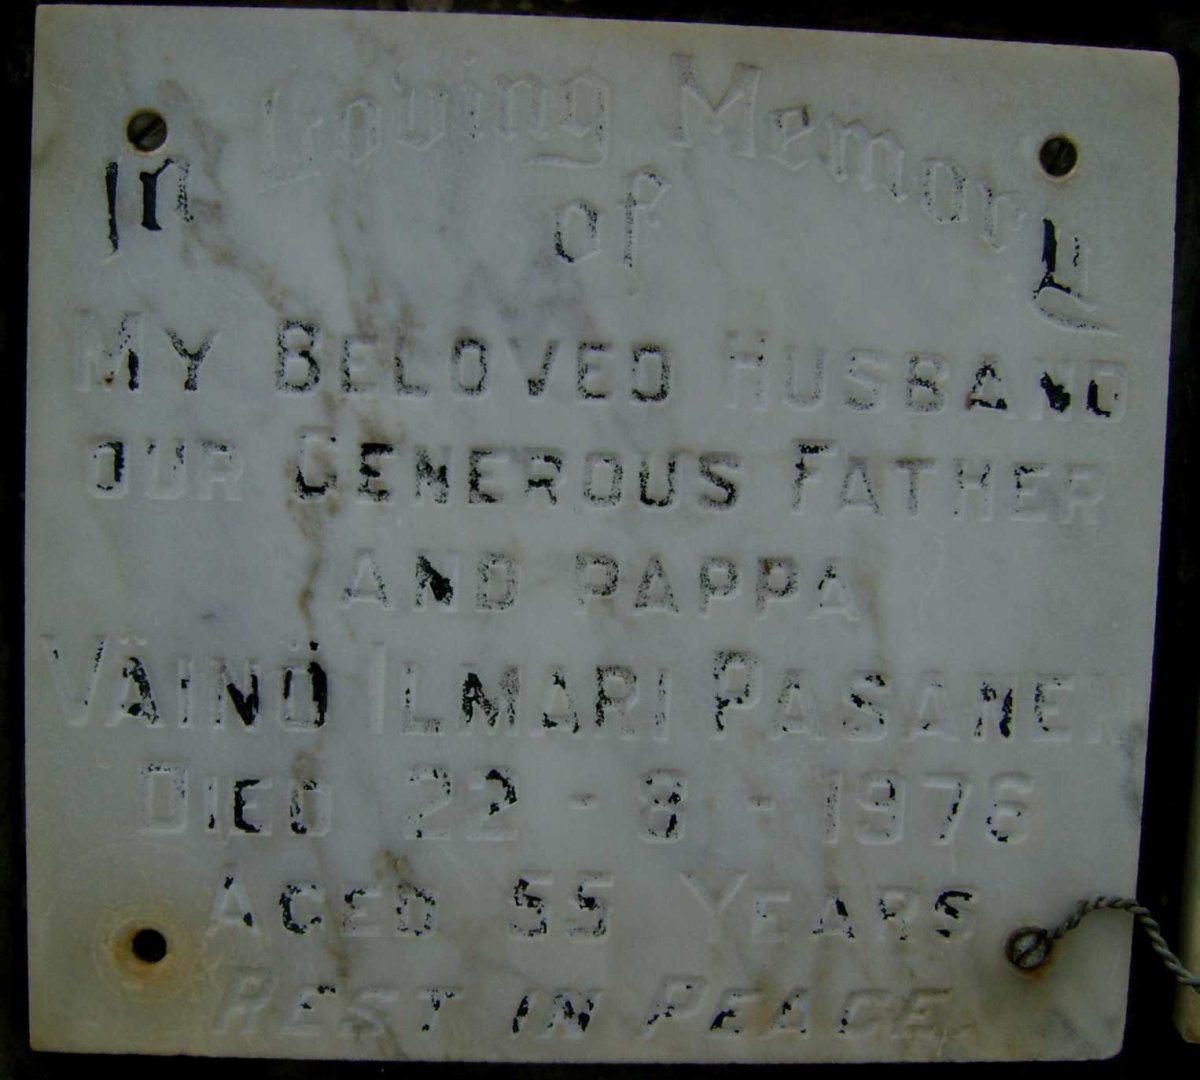 In Loving Memory
of
My Beloved Husband
our Generous Father
and pappa
Väinö Ilmari Pasanen
Died 22 - 8 - 1976
Aged 55 Years
Rest in Peace.